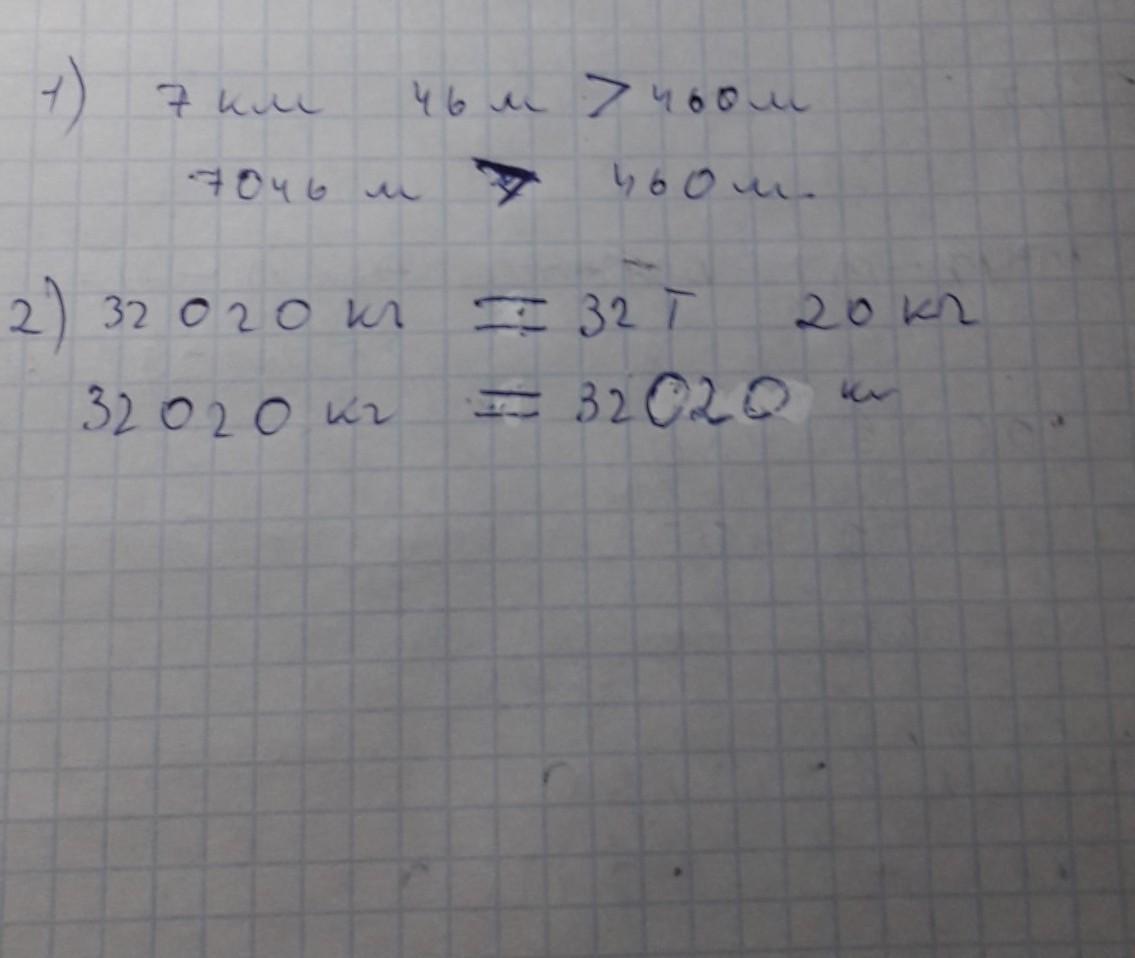 1) 7 км 46 м > 460 м
7046 м > 460 м.
2) 32 020 кг = 32 т 20 кг
32 020 кг = 32 020 кг